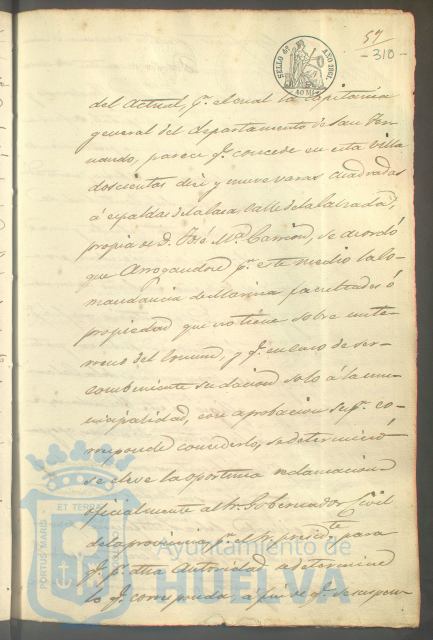 57
- 310 -
SELLO 4º AÑO 1861.
40 Ms
del actual, pr. el cual la Capitania
general del departamento de San Fer-
nando, parece qe. concede en esta villa
doscientas diez y nueve varas cuadradas
á espaldas de la casa, calle de la Calzada,
propia de D. José Mª Carrion, se acordó
que Arrogandose pr. este medio la Co-
mandancia de Marina facultades ó
propiedad que no tiene sobre un te-
rreno del comun, y qe. en caso de ser
combeniente su dacion solo á la mu-
nicipalidad, con aprobacion Supr. co-
rresponde concederlo, se determinó
se eleve la oportuna reclamacion
oficialmente al Sr. Gobernador Civil
de la provincia pr. el Sr. presidte. para
qe. pr. dha Autoridad se determine
lo qe. corresponda, a fin de qe. se suspen
PORTUS MARIS ET TERRE
Ayuntamiento de
HUELVA